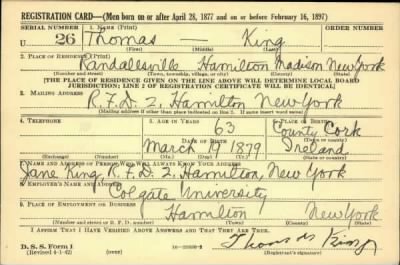 REGISTRATION CARD—(Men born on or after April 28, 1877 and on or before February 16, 1897)
SERIAL NUMBER 1. NAME (Print) ORDER NUMBER
U 26 Thomas — King
(First) (Middle) (Last)
2. PLACE OF RESIDENCE (Print)
Randallsville Hamilton Madison New York
(Number and street) (Town, township, village, or city) (County) (State)
[THE PLACE OF RESIDENCE GIVEN ON THE LINE ABOVE WILL DETERMINE LOCAL BOARD
JURISDICTION; LINE 2 OF REGISTRATION CERTIFICATE WILL BE IDENTICAL]
3. MAILING ADDRESS
R.F.D. 2, Hamilton New York
[Mailing address if other than place indicated on line 2. If same insert word same]
4. TELEPHONE 5. AGE IN YEARS 6. PLACE OF BIRTH
63 County Cork
DATE OF BIRTH (Town or county)
March 19 1879 Ireland
(Exchange) (Number) (Mo.) (Day) (Yr.) (State or country)
7. NAME AND ADDRESS OF PERSON WHO WILL ALWAYS KNOW YOUR ADDRESS
Jane King, R.F.D. 2, Hamilton, New York
8. EMPLOYER'S NAME AND ADDRESS
Colgate University
9. PLACE OF EMPLOYMENT OR BUSINESS
Hamilton New York
(Number and street or R. F. D. number) (Town) (County) (State)
I AFFIRM THAT I HAVE VERIFIED ABOVE ANSWERS AND THAT THEY ARE TRUE.
D. S. S. Form 1 Thomas King
(Revised 4-1-42) (Registrant's signature)